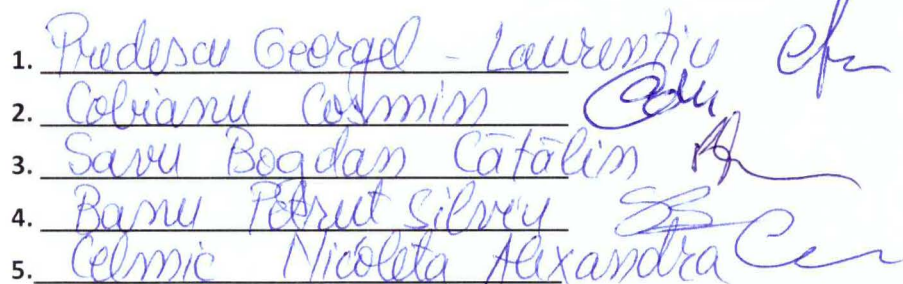 1. Predescu Georgel - Laurențiu
2. Cobianu Cosmin
3. Savu Bogdan Cătălin
4. Banu Petrut Silviu
5. Celmic Nicoleta Alexandra